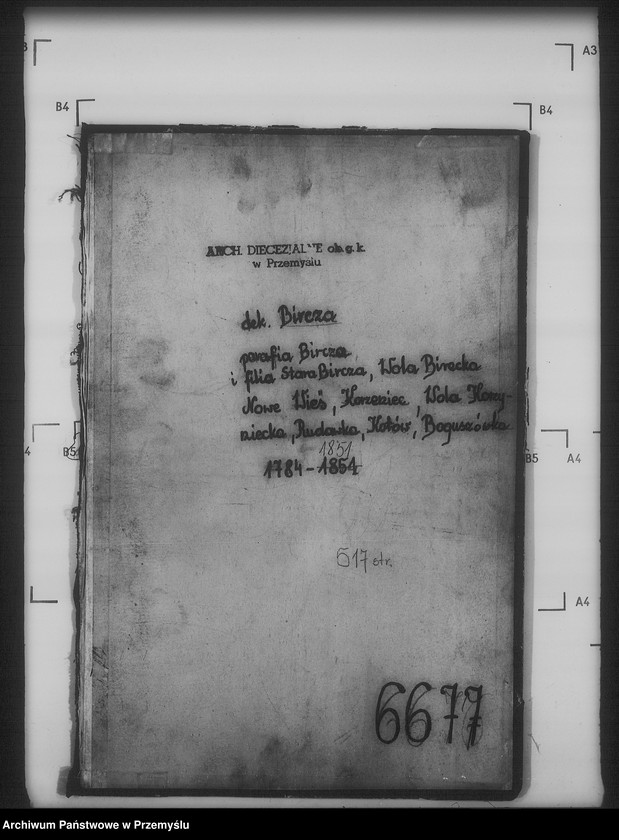 A3
B4
B4
ARCH. DIECEZJALNE ob. g. k.
w Przemyslu
dek. Bircza
parafia Bircza,
i filia Stara Bircza, Wola Birecka
Nowe Wieś, Korzeniec, Wola Korzy-
niecka, Rudawka, Kotów, Boguszówka
1851
1784-1851
B5
B5
A4
517 str.
A4
6677
Archiwum Państwowe w Przemyślu